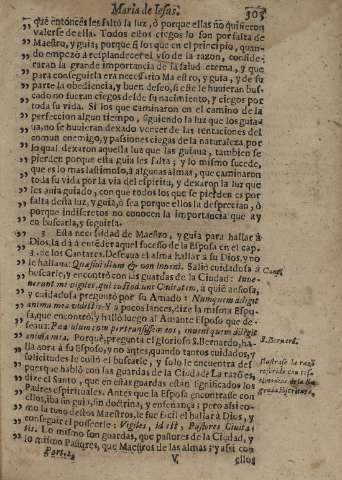 Maria de Iesus. 305
que entonces les faltò la luz, ò porque ellas no quisieron
valerse de ella. Todos ellos ciegos lo son por falta de
Maestro, y guia; porque si los que en el principio, quan-
do empezò à resplandecer el vso de la razon, conside-
raran la grande importancia de la salud eterna, y que
para conseguirla era necessario Maestro, y guia, y de su
parte la obediencia, y buen deseo, si este le huuieran bus-
cado no fueran ciegos desde su nacimiento, y ciegos por
toda su vida. Si los que caminaron en el camino de la
perfeccion algun tiempo, siguiendo la luz que los guia-
ua, no se huuieran dexado vencer de las tentaciones del
comun enemigo, y passiones ciegas de la naturaleza, por
lo qual dexaron aquella luz que las guiaua, tambien se
pierden porque esta guia les falta; y lo mismo sucede,
que es lo mas lastimoso, à algunas almas, que caminaron
toda su vida por la via del espiritu, y dexaron la luz que
les auia guiado, con que todos los que se pierden es por
falta desta luz, y guia, ò sea porque ellos la desprecian, ò
porque indiscretos no conocen la importancia que ay
en buscarla, y seguirla.
3 Esta necessidad de Maestro, y guia para hallar à
Dios, la dà à entender aquel sucesso de la Esposa en el cap.
3. de los Cantares. Deseaua el alma hallar à su Dios, y no
le hallaua: Quæsiui illum & non inueni. Saliò cuidadosa à
buscarle, y encontrò con las guardas de la Ciudad: Inue-
nerunt me vigiles, qui custodiunt Ciuitatem, à quiè ansiosa,
y cuidadosa preguntò por su Amado: Numquem diligit
anima mea vidistis? Y à pocos lances, dize la misma Espo-
sa, que encontrò, y hallò luego al Amante Esposo que de-
seaua: Paululum cum pertransissem eos, inueni quem diligit
anima mea. Porquè, pregunta el glorioso S. Bernardo, ha-
lla aora à su Esposo, y no antes, quando tantos cuidados, y
solicitudes le costò el buscarle, y solo le encuentra des-
pues que hablò con las guardas de la Ciudad? La razon es,
dize el Santo, que en estas guardas estàn significados los
Padres espirituales. Antes que la Esposa encontrasse con
ellos, iba sin guia, sin doctrina, y enseñança; pero assi co-
mo la tuuo destos Maestros, le fue facil el hallar à Dios, y
conseguir el posseerle: Vigiles, id est, Pastores Ciuita-
tis. Lo mismo son guardas, que pastores de la Ciudad, y
lo mismo Pastores, que Maestros de las almas; y assi con
Part. 2. V ellos
Cant.
S. Bernard.